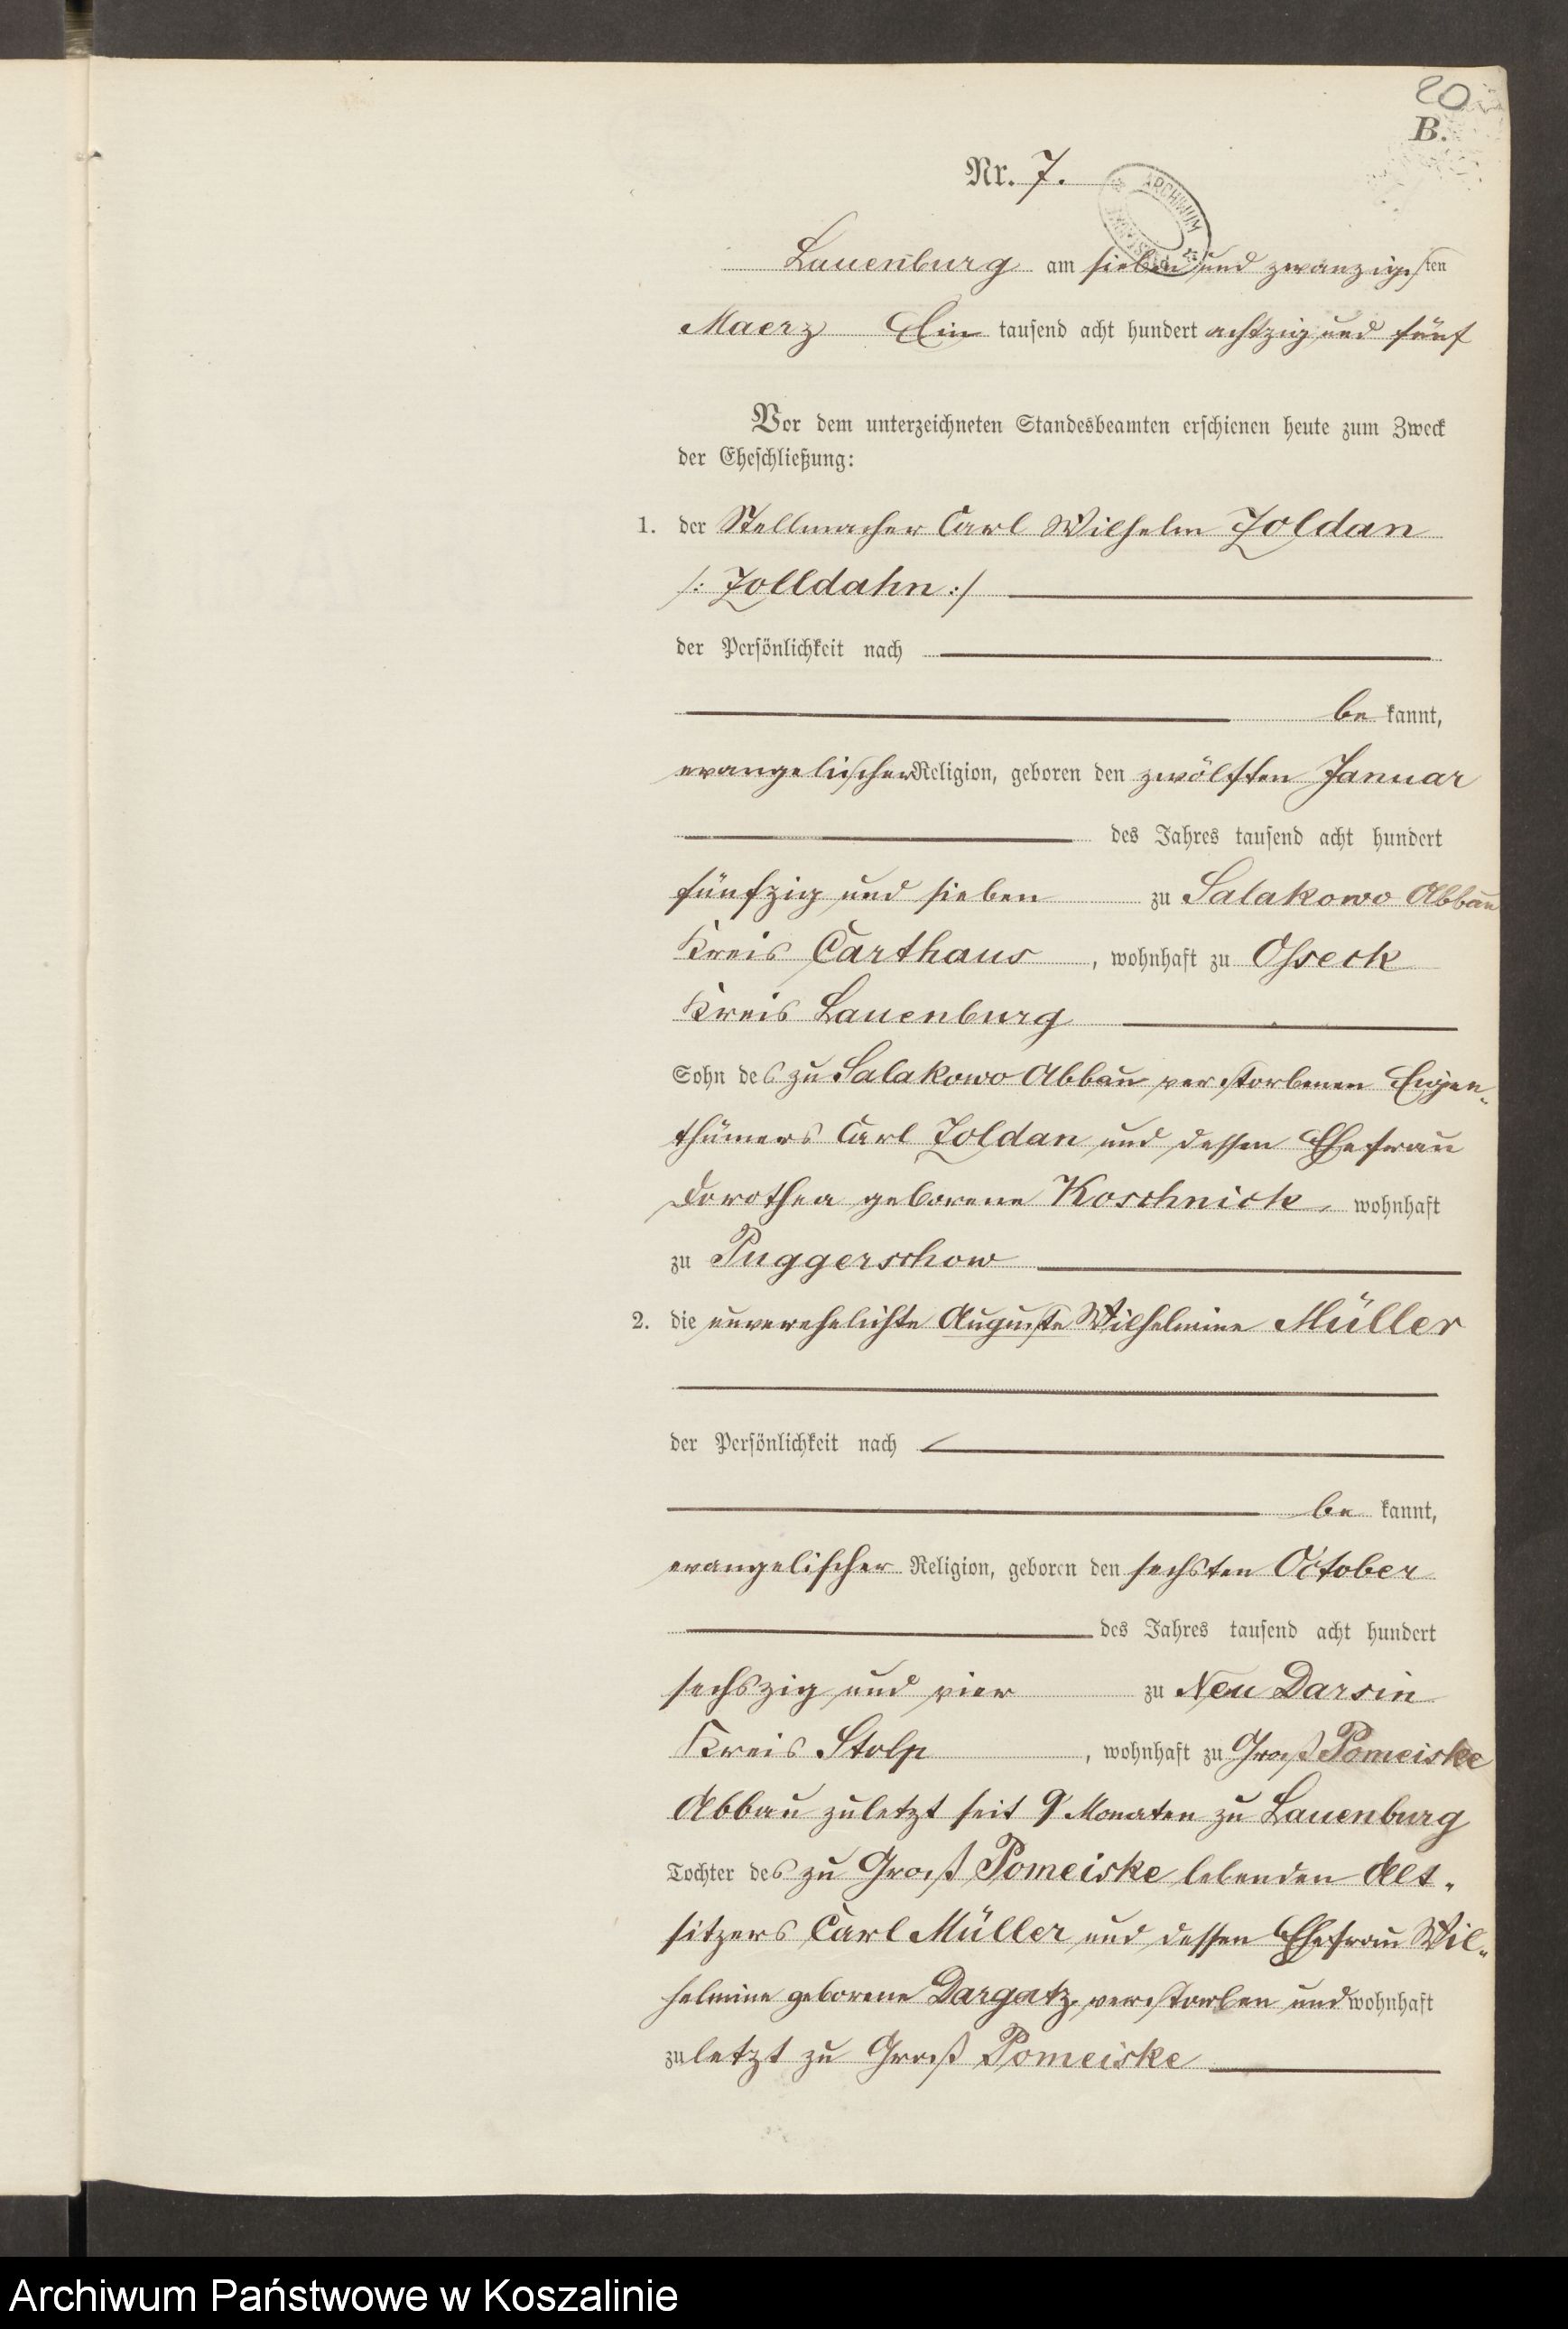 20
B.
Nr. 7.
ARCHIWUM
Lauenburg am sieben und zwanzigsten
Maerz Ein tausend acht hundert achtzig und fünf
Vor dem unterzeichneten Standesbeamten erschienen heute zum Zweck
der Eheschließung:
1. der Stellmacher Carl Wilhelm Zoldan
/: Zolldahn :/
der Persönlichkeit nach
be kannt,
evangelischer Religion, geboren den zwölften Januar
des Jahres tausend acht hundert
fünfzig und sieben zu Salakowo Abbau
Kreis Carthaus, wohnhaft zu Osseck
Kreis Lauenburg
Sohn des zu Salakowo Abbau verstorbenen Eigen-
thümers Carl Zoldan und dessen Ehefrau
Dorothea geborene Koschnick, wohnhaft
zu Puggerschow
2. die unverehelichte Auguste Wilhelmine Müller
der Persönlichkeit nach
be kannt,
evangelischer Religion, geboren den sechsten October
des Jahres tausend acht hundert
sechszig und vier zu Neu Darsin
Kreis Stolp, wohnhaft zu Groß Pomeiske
Abbau zuletzt seit 9 Monaten zu Lauenburg
Tochter des zu Groß Pomeiske lebenden Alt-
sitzers Carl Müller und dessen Ehefrau Wil-
helmine geborene Dargatz, verstorben und wohnhaft
zuletzt zu Groß Pomeiske
Archiwum Państwowe w Koszalinie